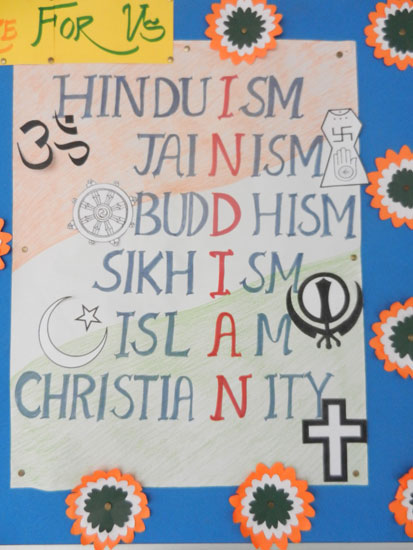 FOR US
HINDUISM
JAINISM
BUDDHISM
SIKHISM
ISLAM
CHRISTIANITY